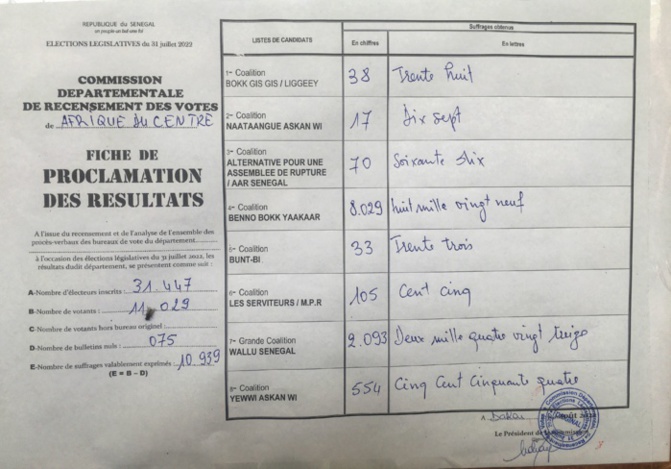 REPUBLIQUE DU SENEGAL
un peuple-un but-une foi
ELECTIONS LEGISLATIVES du 31 juillet 2022
COMMISSION
DEPARTEMENTALE
DE RECENSEMENT DES VOTES
de AFRIQUE du CENTRE
FICHE DE
PROCLAMATION
DES RESULTATS
A l'issue du recensement et de l'analyse de l'ensemble des
procès-verbaux des bureaux de vote du département
à l'occasion des élections législatives du 31 juillet 2022, les
résultats dudit département, se présentent comme suit :
A-Nombre d'électeurs inscrits : 31.447
B-Nombre de votants : 11.029
C-Nombre de votants hors bureau originel :
D-Nombre de bulletins nuls : 075
E-Nombre de suffrages valablement exprimés : 10.939
(E = B - D)
LISTES DE CANDIDATS
Suffrages obtenus
En chiffres
En lettres
1- Coalition
BOKK GIS GIS / LIGGEEY
38
Trente huit
2- Coalition
NAATAANGUE ASKAN WI
17
Dix sept
3- Coalition
ALTERNATIVE POUR UNE
ASSEMBLEE DE RUPTURE
/ AAR SENEGAL
70
Soixante dix
4- Coalition
BENNO BOKK YAAKAAR
8.029
huit mille vingt neuf
5- Coalition
BUNT-BI
33
Trente trois
6- Coalition
LES SERVITEURS / M.P.R
105
Cent cinq
7- Grande Coalition
WALLU SENEGAL
2.093
Deux mille quatre vingt treize
8- Coalition
YEWWI ASKAN WI
554
Cinq Cent Cinquante quatre
A Dakar
Le Président de la